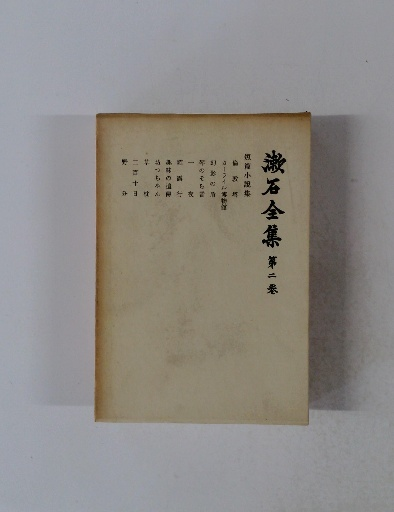 漱石全集 第二巻
短篇小説集
倫敦塔
カーライル博物館
幻影の盾
琴のそら音
一夜
薤露行
趣味の遺傳
坊つちやん
草枕
二百十日
野分